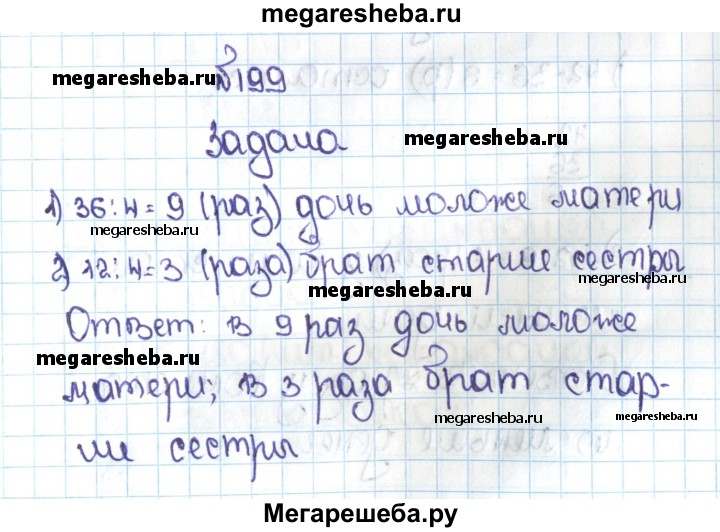 megaresheba.ru
№199
megaresheba.ru
Задача
megaresheba.ru
1) 36:4=9 (раз) дочь моложе матери
megaresheba.ru
2) 12:4=3 (раза) брат старше сестры
megaresheba.ru
Ответ: в 9 раз дочь моложе
megaresheba.ru
матери; в 3 раза брат стар-
megaresheba.ru
megaresheba.ru
ше сестры
Мегарешеба.ру